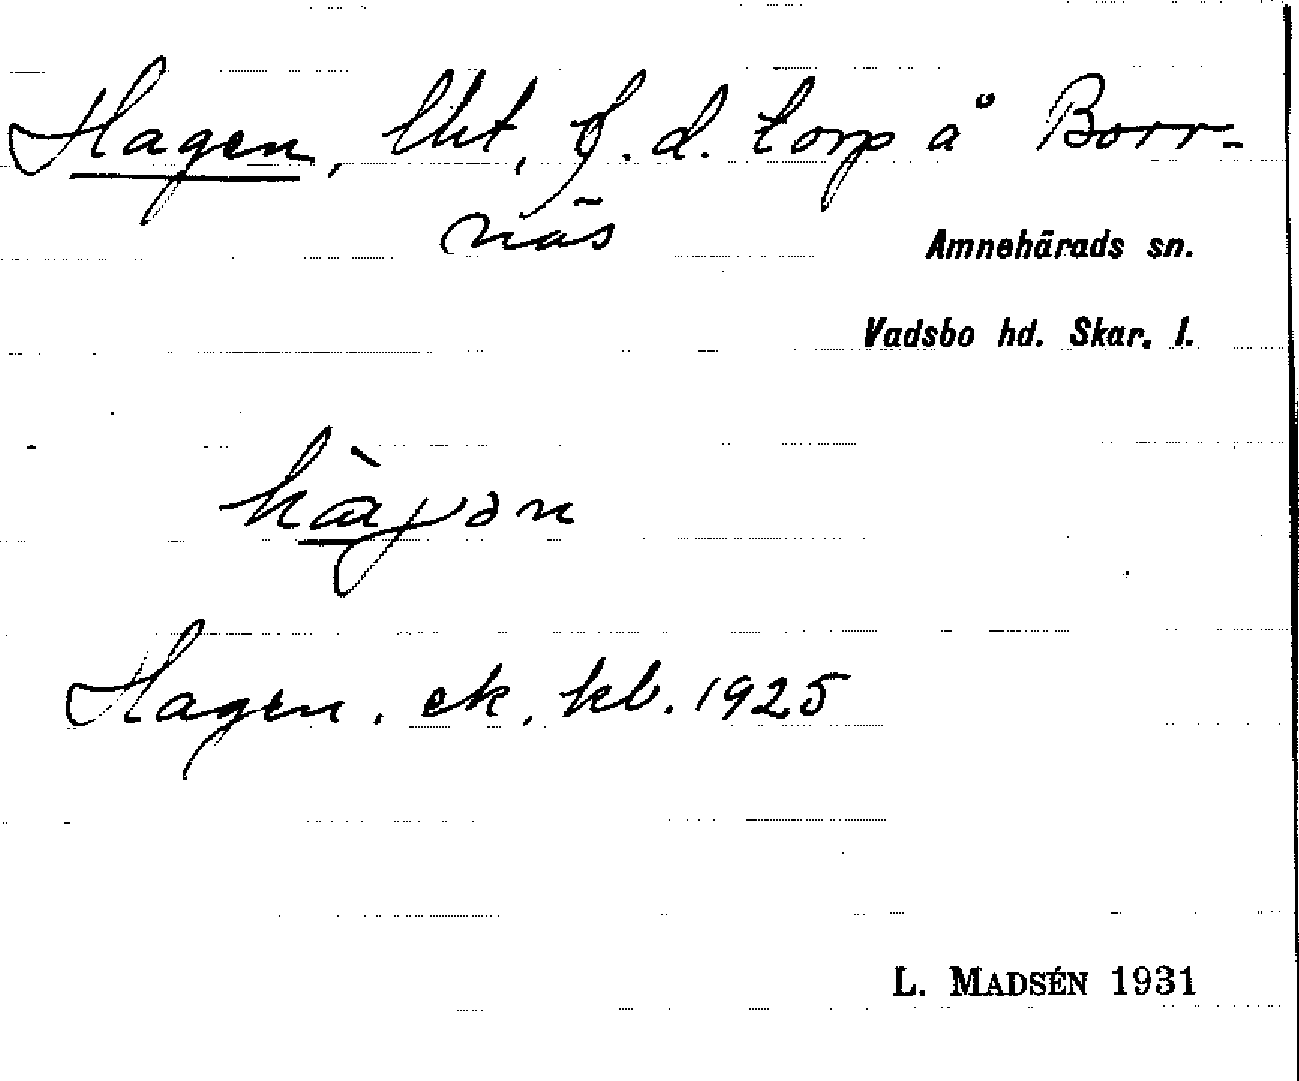 Hagen, lht, f. d. torp å Borr-
näs
Amnehärads sn.
Vadsbo hd. Skar. l.
Hagen. ek. kb. 1925
L. MADSÉN 1931